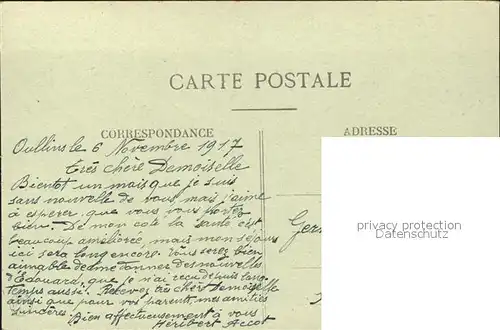 CARTE POSTALE
CORRESPONDANCE
ADRESSE
Oullins le 6 Novembre 1917
très chère Demoiselle
Bientot un mois que je suis
sans nouvelle de vous mais j'aime
à espérer que vous vous portez
bien. De mon coté la santé s'est
beaucoup améliorée, mais mon séjour
ici sera long encore. Vous serez bien
aimable de me donner des nouvelles
d'Edouard, que je n'ai recu depuis long
temps aussi. Recevez très chère Demoiselle
ainsi que pour vos parents, mes amitiés
sincères.
Bien affectueusement à vous
Heribert
Ger
privacy protection